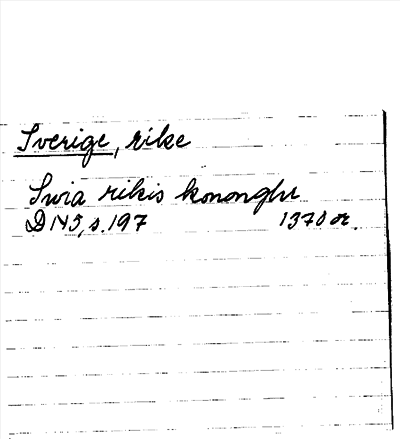 Sverige, rike
Swia rikis kononghe
DN5, s. 197 1370 or.